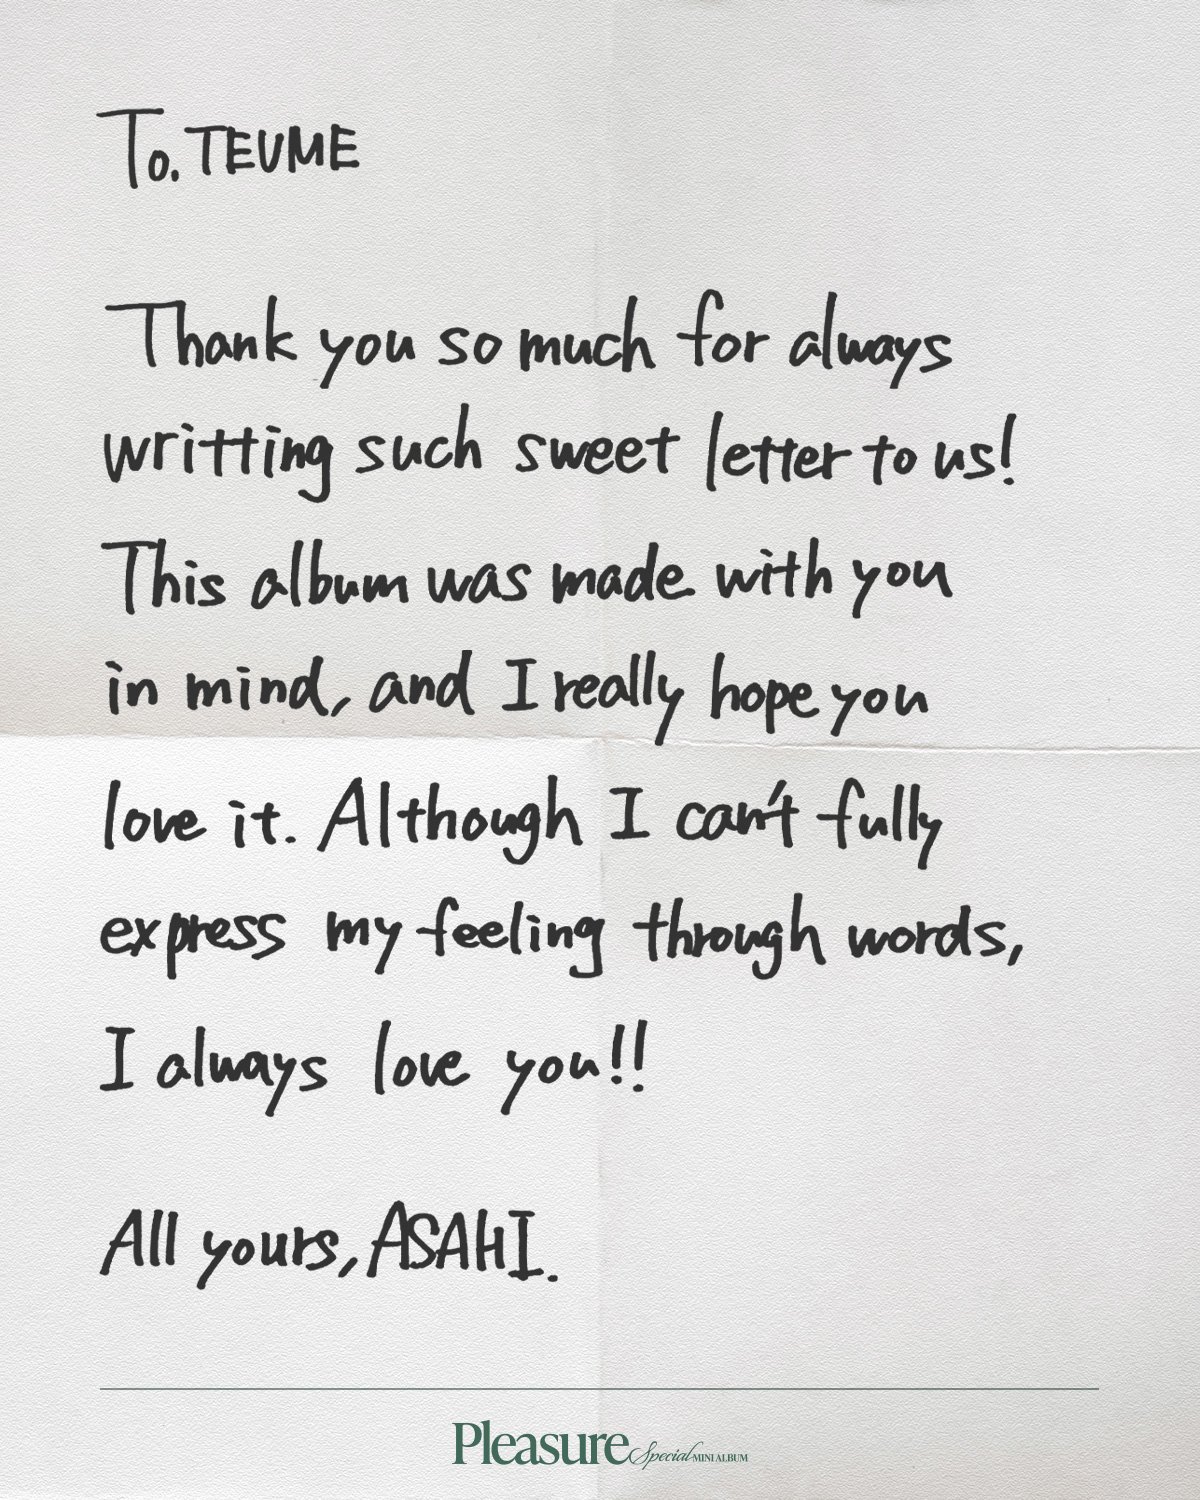 To. TEUME
Thank you so much for always
writting such sweet letter to us!
This album was made with you
in mind, and I really hope you
love it. Although I can't fully
express my feeling through words,
I always love you!!
All yours, ASAHI.
Pleasure Special MINI ALBUM